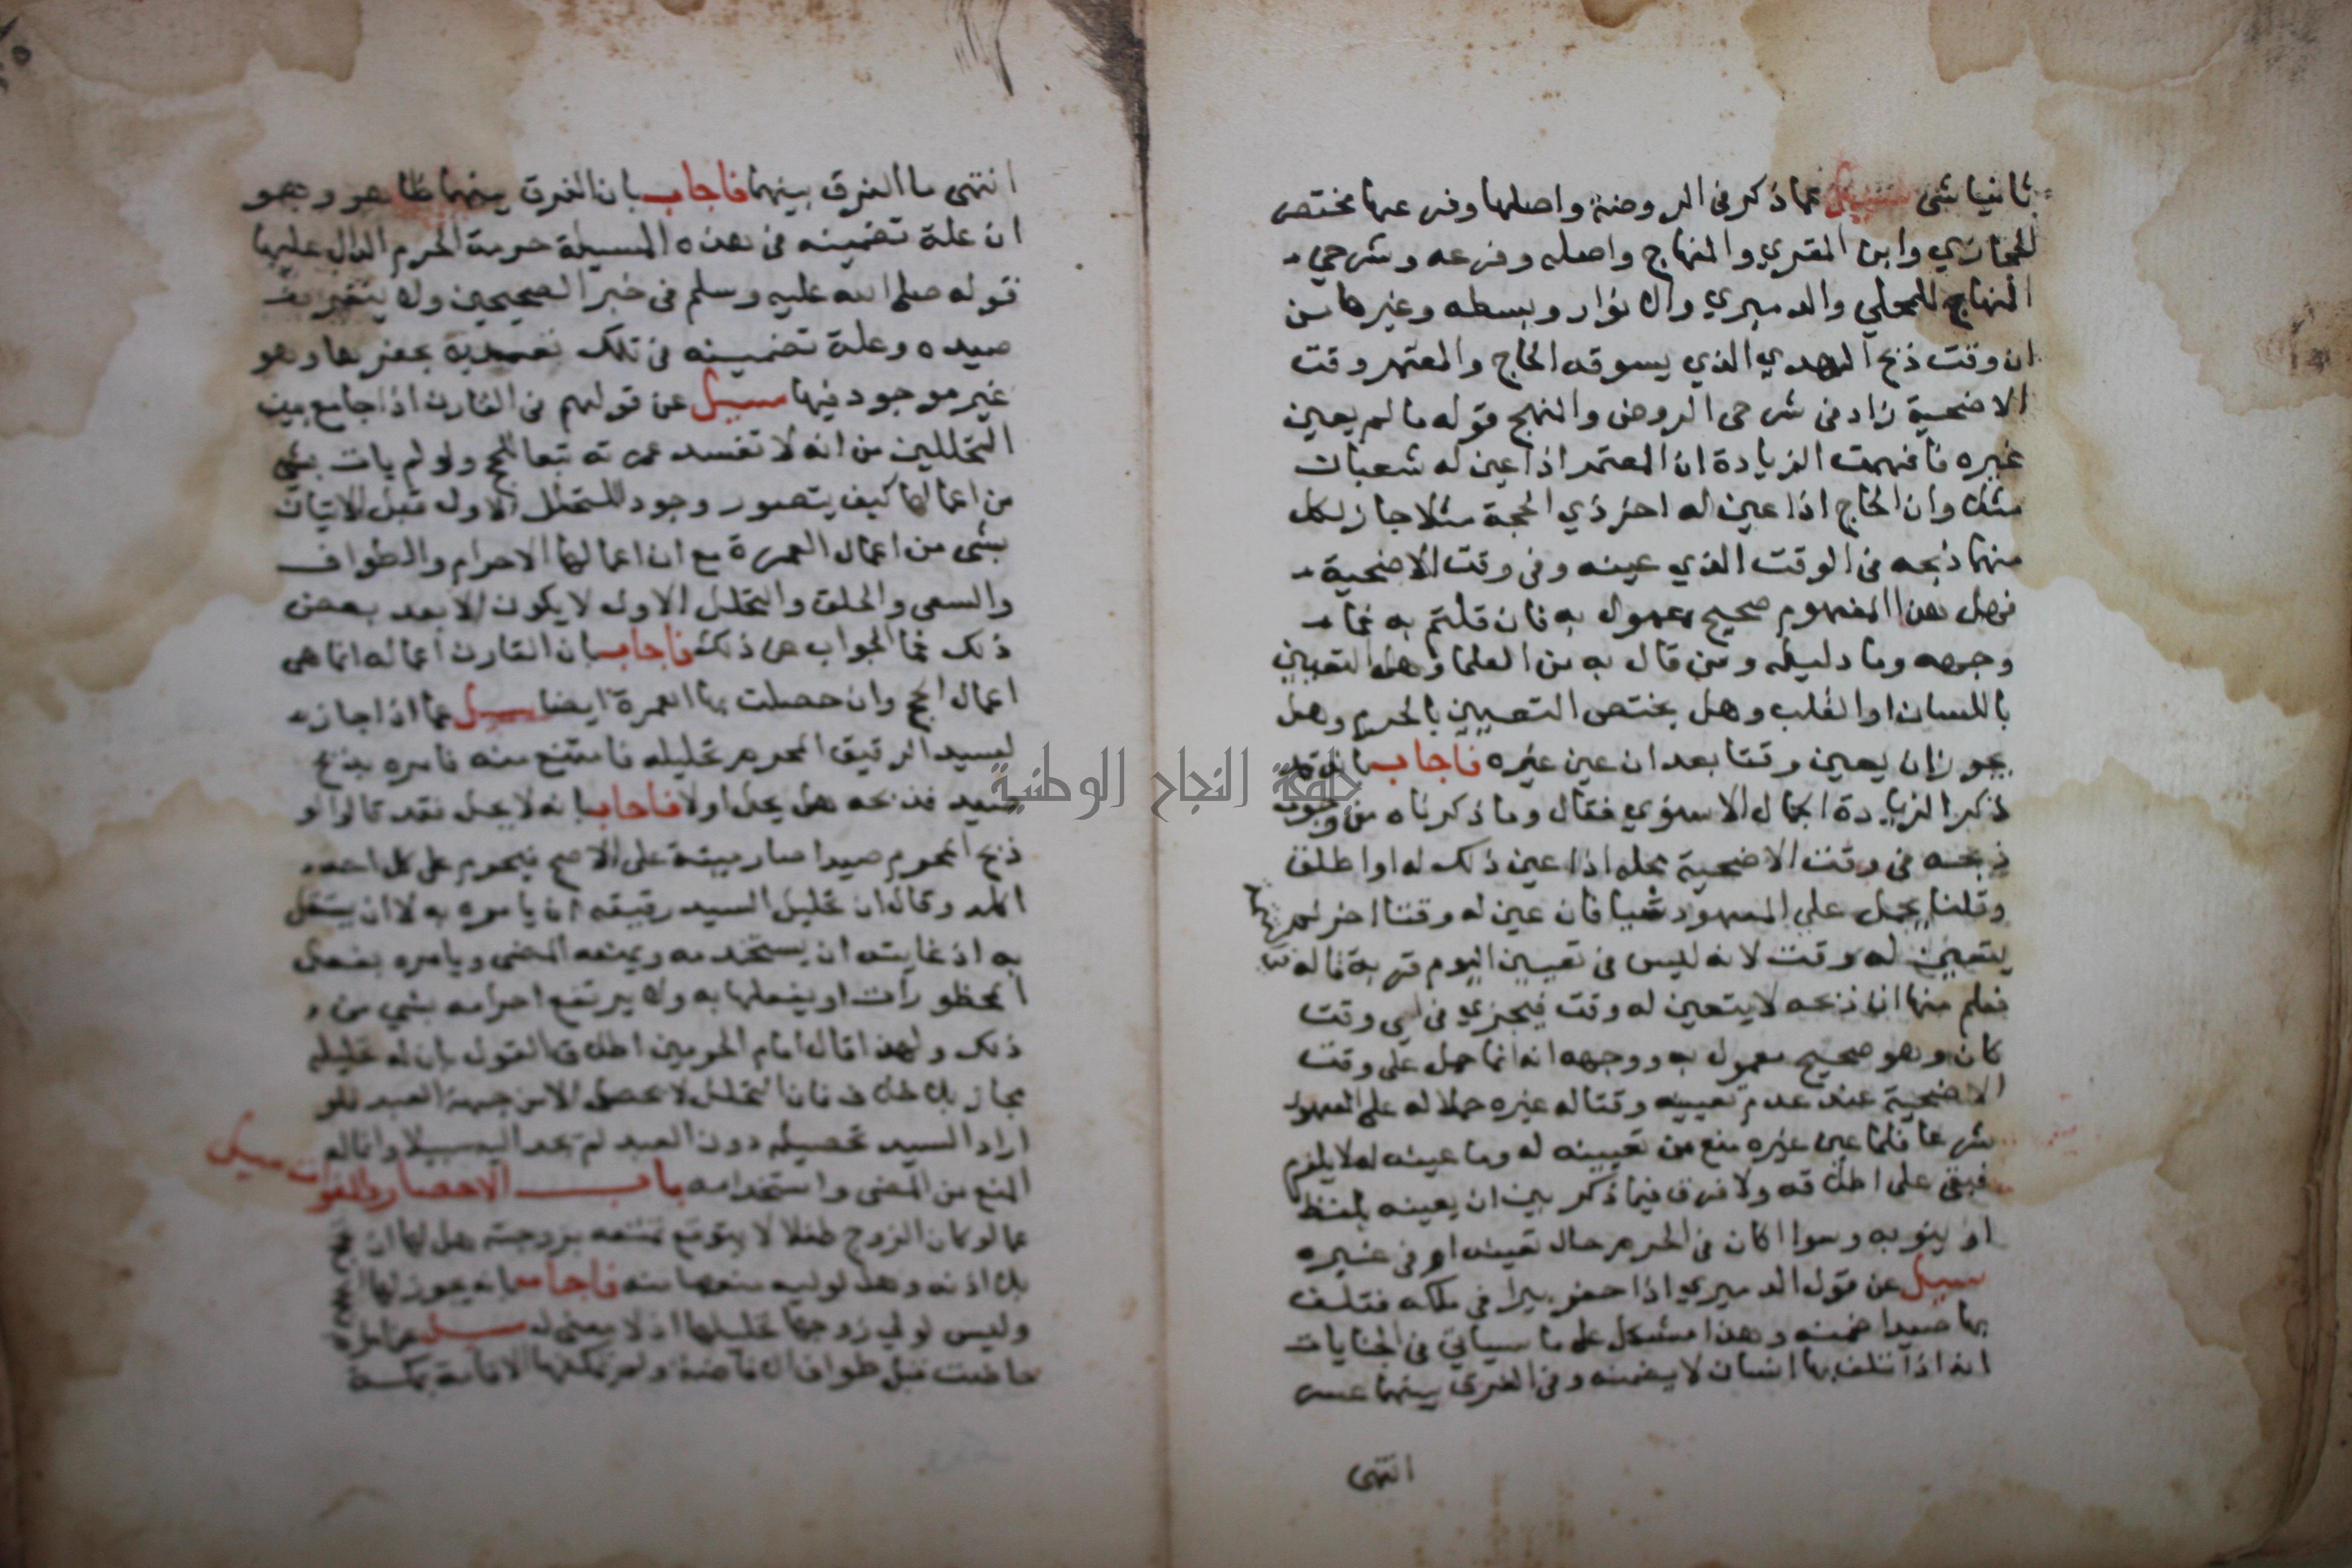 ثانيا شى سيل عما ذكر فى الروضة واصلها وفرعها مختص
للحجازي وابن المقري والمنهاج واصله وفرعه وشرحي
المنهاج للمحلي والدميري والانوار وبسطه وغيرها من
ان وقت ذبح الهدي الذي يسوقه الحاج والمعتمر وقت
الاضحية زاد فى شرحى الروض والمنهج قوله ما لم يعين
غيره فافهمت الزيادة ان المعتمر اذا عين له شعبان
مثلا وان الحاج اذا عين له اخر ذي الحجة مثلا جاز لكل
منهما ذبحه فى الوقت الذي عينه وفى وقت الاضحية
فهل هذا المفهوم صحيح معمول به فان قلتم به فما
وجهه وما دليله ومن قال به من العلما وهل التعيين
باللسان او القلب وهل يختص التعيين بالحرم وهل
يجوز ان يعين وقتا بعد ان عين غيره فاجاب بانه قد
ذكر الزيادة الجمال الاسنوي فقال وما ذكرناه من وجوب
ذبحه فى وقت الاضحية محله اذا عين ذلك له او اطلق
وقلنا يحمل على المعهود شرعا فان عين له وقتا اخر لم
يتعين له وقت لانه ليس فى تعيين اليوم قربة قاله
فعلم منها ان ذبحه لا يتعين له وقت فيجزي فى اي وقت
كان وهو صحيح معمول به ووجهه انه انما حمل على وقت
الاضحية عند عدم تعيينه وقتا له غيره حملا له على المعهود
شرعا فلما عين غيره منع من تعيينه له وما عينه له لا يلزم
فبقى على اطلاقه ولا فرق فيما ذكر بين ان يعينه بلفظ
او ينويه وسوا اكان فى الحرم حال تعينه او فى غيره
سيل عن قول الدميري اذا حفر بيرا فى ملكه فتلف
بها صيدا ضمنه وهذا مشكل على ما سياتي فى الجنايات
انه اذا تلف بها انسان لا يضمنه وفى الفرق بينهما عسر
انتهى
انتهى ما الفرق بينهما فاجاب بان الفرق بينهما ظاهر وهو
ان علة تضمينه فى هذه المسيلة حرمة الحرم الدال عليها
قوله صلى الله عليه وسلم فى خبر الصحيحين ولا ينفر
صيده وعلة تضمينه فى تلك تعديه بحفرها وهو
غير موجود فيها سيل عن قولهم فى القارن اذا جامع بين
التحللين من انه لا تفسد عمرته تبعا للحج ولو لم يات بشى
من اعمالها كيف يتصور وجود التحلل الاول قبل الاتيان
بشى من اعمال العمرة مع ان اعمالها الاحرام والطواف
والسعى والحلق والتحلل الاول لا يكون الا بعد بعض
ذلك فما الجواب عن ذلك فاجاب بان القارن اعماله انما هى
اعمال الحج وان حصلت بها العمرة ايضا سيل عما اذا جاز
لسيد الرقيق المحرم تحليله فامتنع منه فامره بذبح
صيد فذبحه هل يحل اولا فاجاب بانه لا يحل فقد قالوا لو
ذبح المحرم صيدا صار ميتة على الاصح فيحرم على كل احد
اكله وقال ان تحليل السيد رقيقه ان يامره به لا ان يستقل
به اذ غايته ان يستخدمه ويمنعه المضى ويامره بفعل
المحظورات او يفعلها به ولا يرتفع احرامه بشي من
ذلك ولهذا قال امام الحرمين اطلاق القول بان له تحليله
مجاز بلا خلاف فان التحلل لا يحصل الا من جهة العبد فلو
اراد السيد تحصيله دون العبد لم يجد اليه سبيلا وانما له
المنع من المضى واستخدامه باب الاحصار والفوات سيل
عما لو كان الزوج طفلا لا يتوقع تمتعه بزوجته هل لها ان تحج
بلا اذنه وهل لوليه منعها منه فاجاب بانه يجوز لها
وليس لولي زوجها تحليلها اذ لا معنى له سيل عن امراة
حاضت قبل طواف الافاضة ولم يمكنها الاقامة بمكة